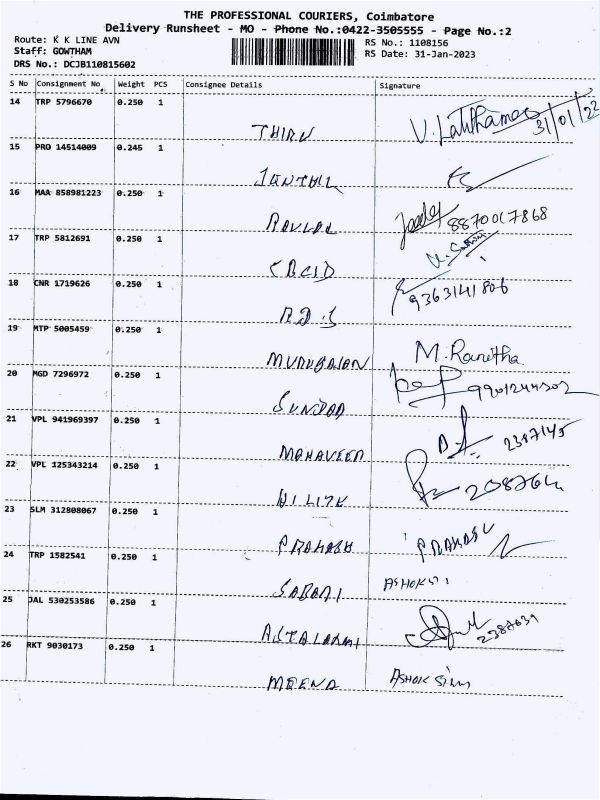 THE PROFESSIONAL COURIERS, Coimbatore
Delivery Runsheet - MO - Phone No.:0422-3505555 - Page No.:2
Route: K K LINE AVN
Staff: GOWTHAM
DRS No.: DCJB110815602
RS No.: 1108156
RS Date: 31-Jan-2023
S No Consignment No Weight PCS Consignee Details Signature
14 TRP 5796670 0.250 1
THIRU V. Laththamani 31/01/23
15 PRO 14514009 0.245 1
16 MAA 858981223 0.250 1
8870017868
17 TRP 5812691 0.250 1
CBCID
18 CNR 1719626 0.250 1
9363141806
19 MTP 5005459 0.250 1
MURUGAIAN M. Ranitha
20 MGD 7296972 0.250 1
SUNDAR
21 VPL 941969397 0.250 1
MAHAVEER 2387145
22 VPL 125343214 0.250 1
23 SLM 312808067 0.250 1
PRAKASH PRAKASH
24 TRP 1582541 0.250 1
25 JAL 530253586 0.250 1
26 RKT 9030173 0.250 1
MEENA